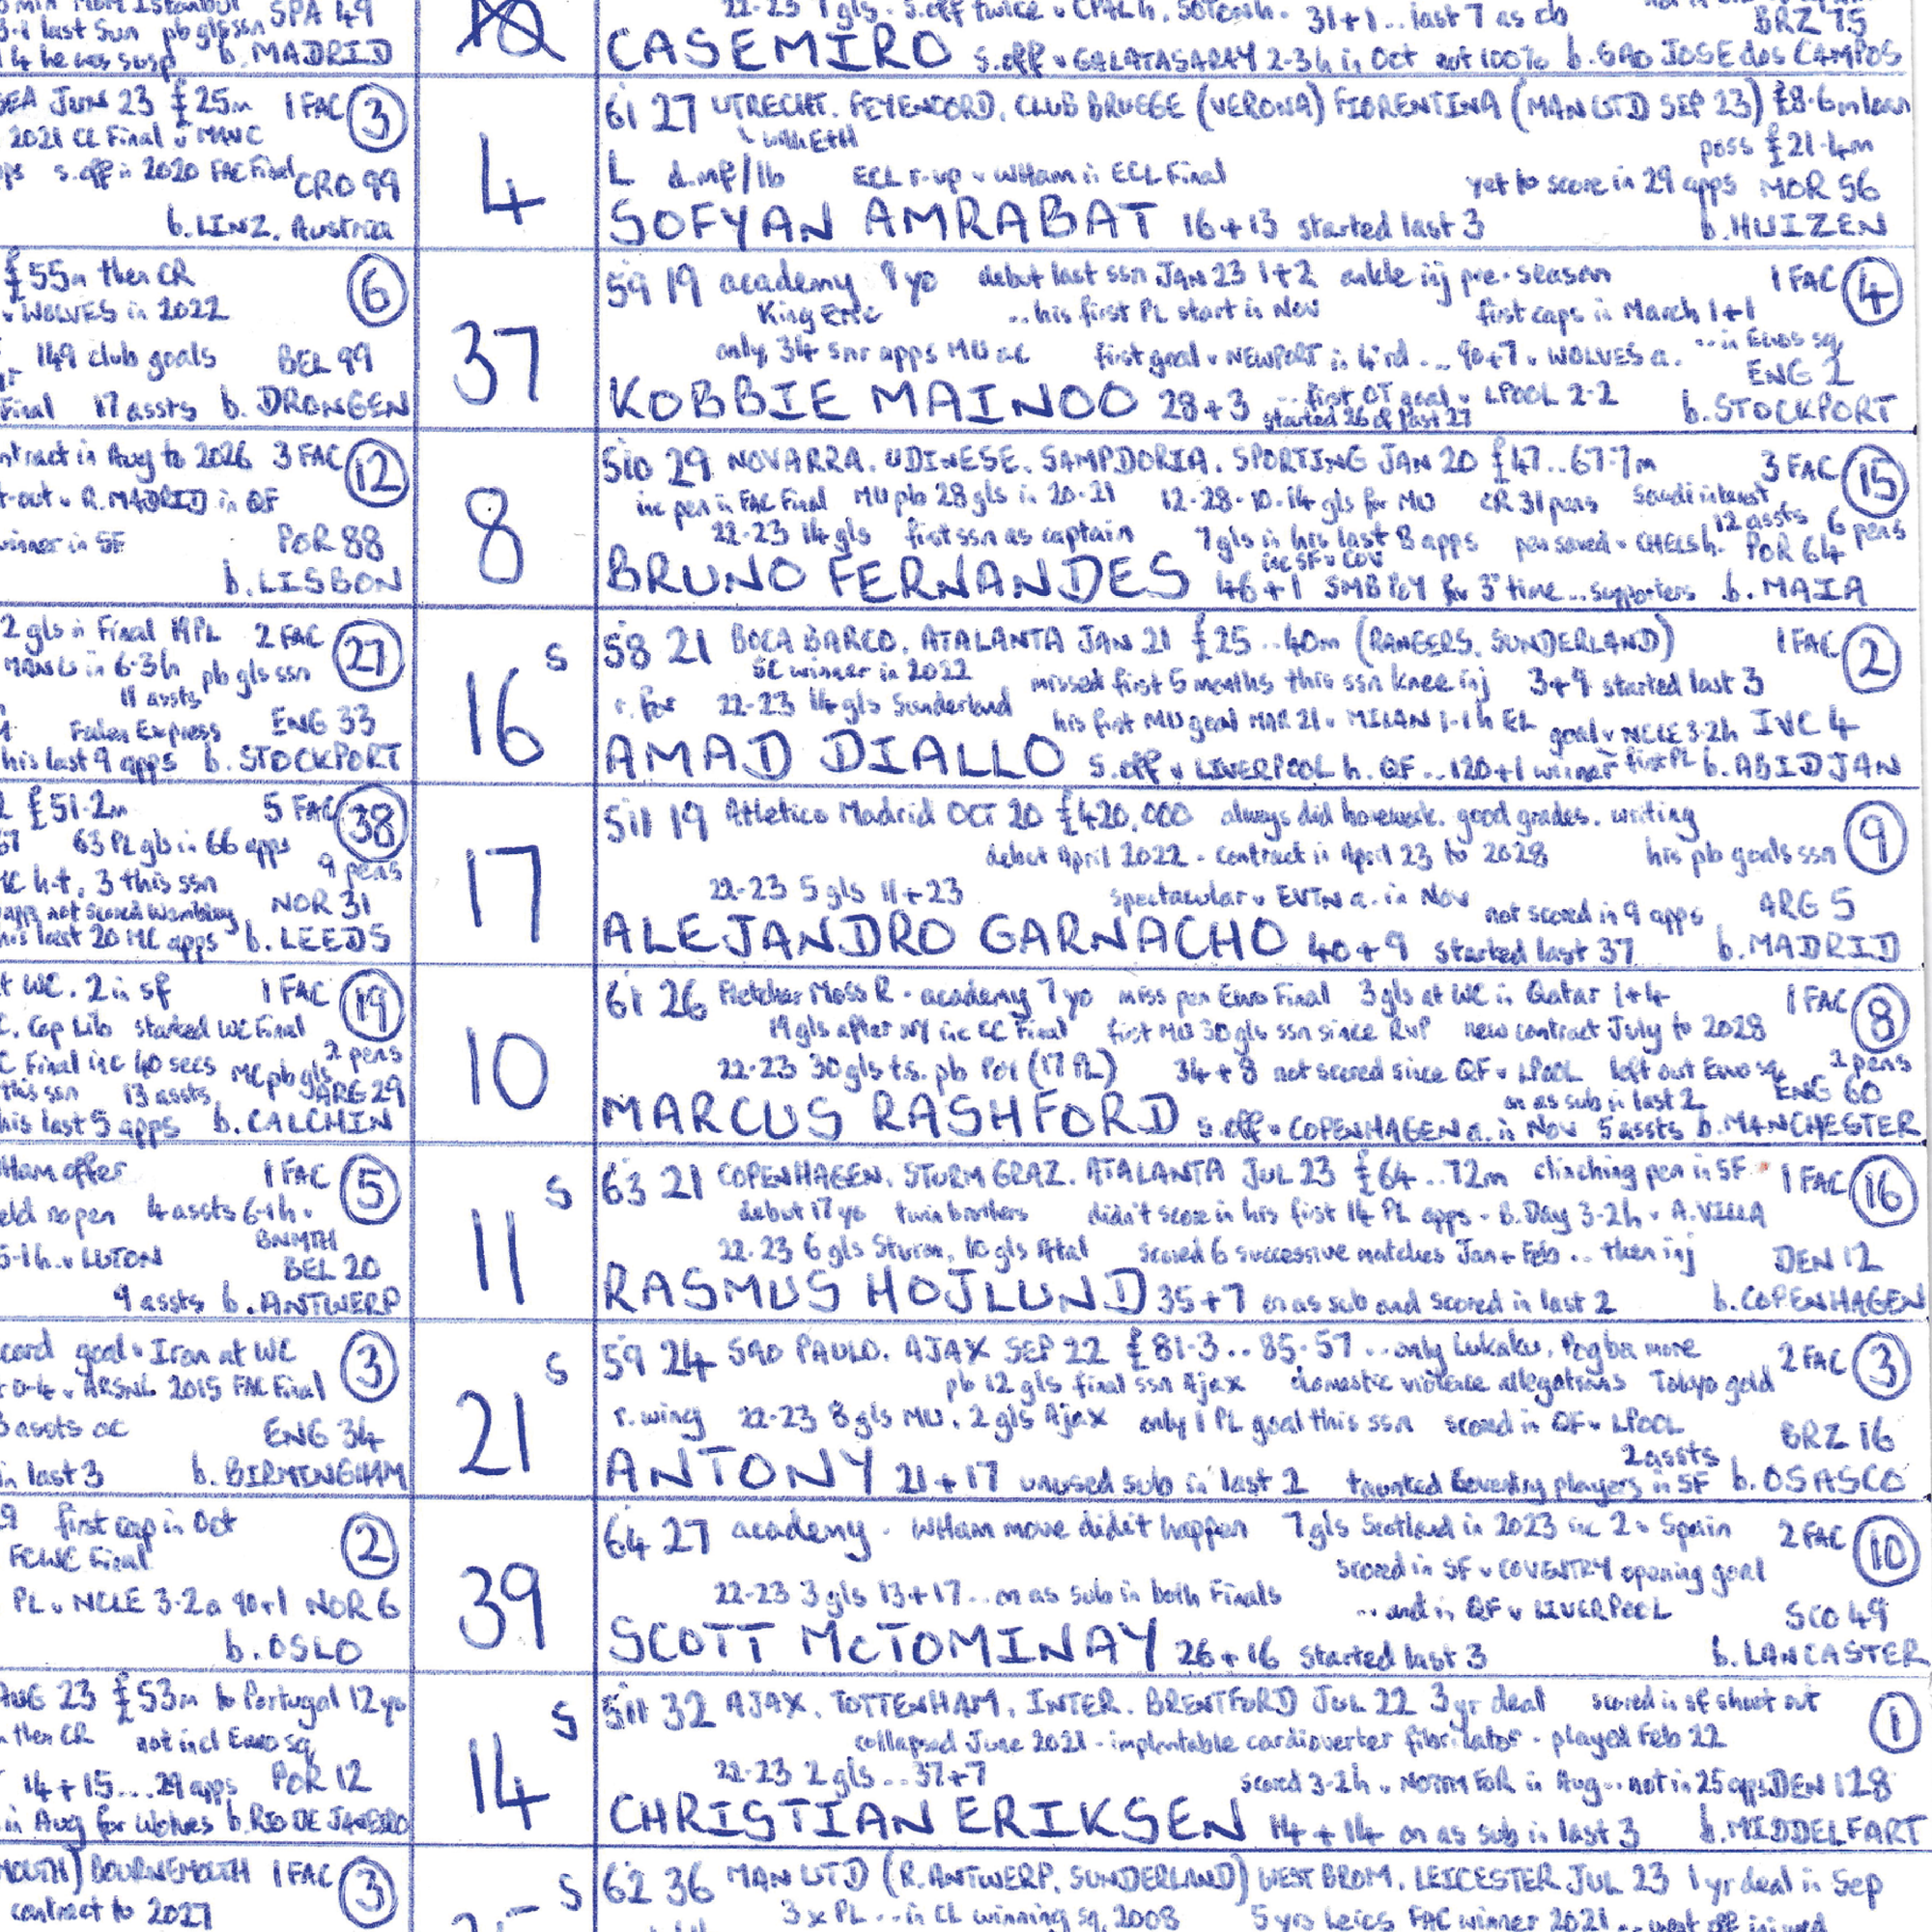 SPA 49
last Sun pb gls ssn
14 he was susp b. MADRID
10
22-23 7 gls. s.off twice v CPAL h. 31+1 .. last 7 as cb
BRZ 75
CASEMIRO s.off v GALATASARAY 2-3 h in Oct not 100% b. SAO JOSE dos CAMPOS
JUN 23 £25m 1 FAC 3
2021 CL Final v MANC
s.off in 2020 FAC Final CRO 99
b. LINZ. Austria
4
6i 27 UTRECHT. FEYENOORD. CLUB BRUGGE (VERONA) FIORENTINA (MAN UTD SEP 23) £8.6m loan
with EtH
poss £21.4m
L d.mf/lb ECL r.up v WHam in ECL Final yet to score in 29 apps MOR 56
SOFYAN AMRABAT 16+13 started last 3 b. HUIZEN
£55m then CR 6
v WOLVES in 2022
149 club goals BEL 99
Final 17 assts b. DRONGEN
37
5i9 19 academy 9yo debut last ssn JAN 23 1+2 ankle inj pre-season 1 FAC 4
King Eric .. his first PL start in Nov first caps in March 1+1
only 34 snr apps MU ac first goal v NEWPORT in 4 rd ... 90+7 v WOLVES a. .. in Euos sq
ENG 2
KOBBIE MAINOO 28+3 .. first OT goal v LPOOL 2-2 b. STOCKPORT
started 26 of last 27
contract in Aug to 2026 3 FAC 12
t-out v R. MADRID in QF
winner in SF POR 88
b. LISBON
8
5i10 29 NOVARRA. UDINESE. SAMPDORIA. SPORTING JAN 20 £47..67.7m 3 FAC 15
inc pen in FAC Final MU pb 28 gls in 20-21 12-28-10-14 gls for MU CR 31 pens Saudi interest
22-23 14 gls first ssn as captain 7 gls in his last 8 apps pen saved v CHELS h. 12 assts 6 pens
inc SF v COV POR 64
BRUNO FERNANDES 46+1 SMB PoY for 3rd time ... supporters b. MAIA
2 gls in Final PL 2 FAC 27
MAN U in 6-3 h pb gls ssn
11 assts
Fallen Express ENG 33
his last 9 apps b. STOCKPORT
16 S
5i8 21 BOCA BARCO. ATALANTA JAN 21 £25..40m (RANGERS. SUNDERLAND) 1 FAC 2
SC winner in 2022 missed first 5 months this ssn knee inj 3+9 started last 3
r. for 22-23 14 gls Sunderland his first MU goal MAR 21 v MILAN 1-1 h EL goal v NCLE 3-2 h IVC 4
AMAD DIALLO s.off v LIVERPOOL h. QF .. 120+1 winner first PL b. ABIDJAN
2 £51.2m 5 FAC 38
63 PL gls in 66 apps
9 pens
h-t, 3 this ssn
not scored Wembley NOR 31
his last 20 MC apps b. LEEDS
17
5i11 19 Atletico Madrid OCT 20 £420,000 always did homework. good grades. writing 9
debut April 2022 - contract in April 23 to 2028 his pb goals ssn
22-23 5 gls 11+23 spectacular v EVTN a. in Nov not scored in 9 apps ARG 5
ALEJANDRO GARNACHO 40+9 started last 37 b. MADRID
WC. 2 in sf 1 FAC 19
Cop Lib started WC Final
Final inc 40 secs MC pb gls 2 pens
this ssn 13 assts ARG 29
his last 5 apps b. CALCHIN
10
6i 26 Fletcher Moss R - academy 7yo miss pen Euro Final 3 gls at WC in Qatar 1+4 1 FAC 8
19 gls after WC inc CC Final first MU 30 gls ssn since RvP new contract July to 2028
22-23 30 gls t.s. pb PoY (17 PL) 34+8 not scored since QF v LPOOL left out Euro sq 2 pens
on as sub in last 2 ENG 60
MARCUS RASHFORD s.off v COPENHAGEN a. in Nov 5 assts b. MANCHESTER
WHam offer 1 FAC 5
no pen 4 assts 6-1 h v
BNMTH
5-1 h. v LUTON BEL 20
9 assts b. ANTWERP
11 S
6i3 21 COPENHAGEN. STURM GRAZ. ATALANTA JUL 23 £64..72m clinching pen in SF 1 FAC 16
debut 17yo twin brothers didn't score in his first 14 PL apps - B. Day 3-2 h v A. VILLA
22-23 6 gls Sturm, 10 gls Atal scored 6 successive matches Jan + Feb .. then inj DEN 12
RASMUS HOJLUND 35+7 on as sub and scored in last 2 b. COPENHAGEN
goal v Iran at WC 3
0-4 v ARSNL 2015 FAC Final
assts ac ENG 34
in last 3 b. BIRMINGHAM
21 S
5i9 24 SAO PAULO. AJAX SEP 22 £81.3..85.57 .. only Lukaku, Pogba more 2 FAC 3
pb 12 gls final ssn Ajax domestic violence allegations Tokyo gold
r. wing 22-23 8 gls MU, 2 gls Ajax only 1 PL goal this ssn scored in QF v LPOOL BRZ 16
2 assts
ANTONY 21+17 unused sub in last 2 taunted Coventry players in SF b. OSASCO
first cap in Oct 2
FCWC Final
PL v NCLE 3-2 a 90+1 NOR 6
b. OSLO
39
6i4 27 academy. WHam move didn't happen 7 gls Scotland in 2023 inc 2 v Spain 2 FAC 10
scored in SF v COVENTRY opening goal
22-23 3 gls 13+17 .. on as sub in both Finals ... and in QF v LIVERPOOL SCO 49
SCOTT McTOMINAY 26+16 started last 3 b. LANCASTER
AUG 23 £53m to Portugal 12yo
then CR not incl Euro sq
14+15 .... 29 apps POR 12
in Aug for Wolves b. RIO DE JANEIRO
14 S
5i11 32 AJAX. TOTTENHAM. INTER. BRENTFORD JUL 22 3 yr deal scored in sf shoot out 1
collapsed June 2021 - implantable cardioverter fibrilator - played Feb 22
22-23 2 gls .. 37+7 scored 3-2 h v NOTTM FOR in Aug .. not in 25 apps DEN 128
CHRISTIAN ERIKSEN 14+14 on as sub in last 3 b. MIDDELFART
BOURNEMOUTH 1 FAC 3
contract to 2027
S
6i2 36 MAN UTD (R. ANTWERP. SUNDERLAND) WEST BROM. LEICESTER JUL 23 1 yr deal in Sep
3 x PL .. in CL winning sq. 2008 5 yrs Leics FAC winner 2021